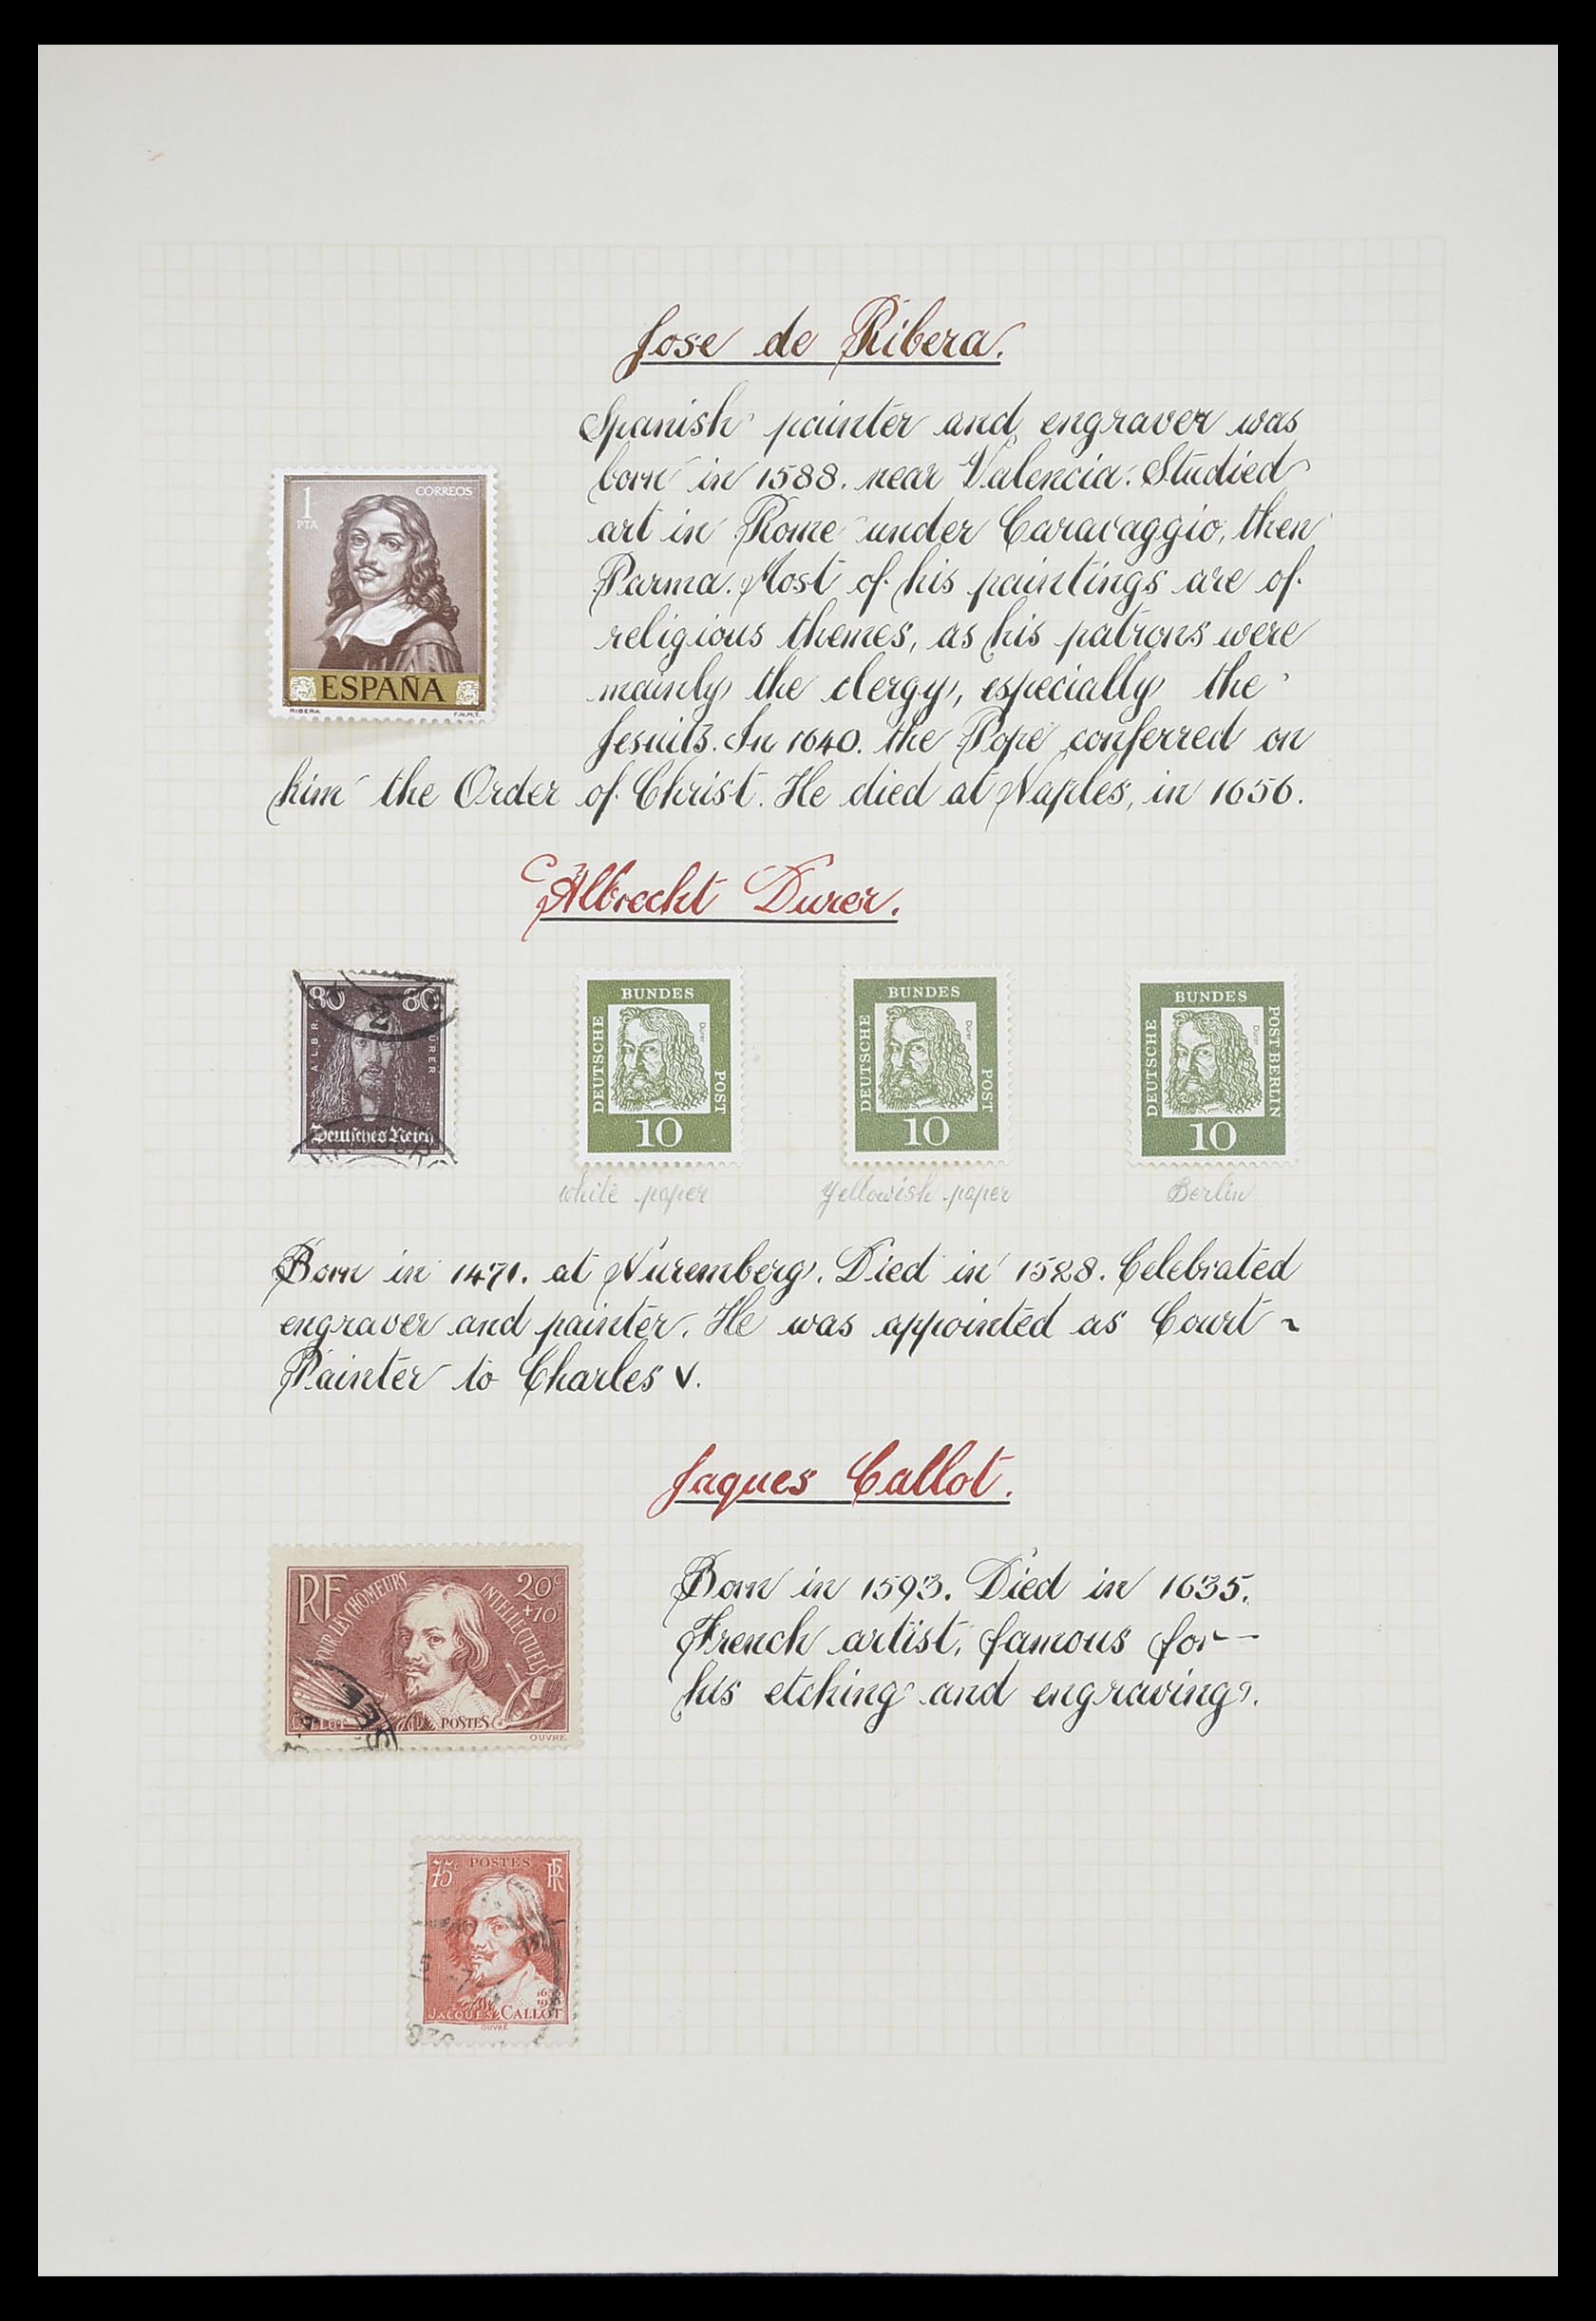 Jose de Ribera.
Spanish painter and engraver was
born in 1588. near Valencia. Studied
art in Rome under Caravaggio, then
Parma. Most of his paintings are of
religious themes, as his patrons were
mainly the clergy, especially the
Jesuits. In 1640. the Pope conferred on
him the Order of Christ. He died at Naples, in 1656.
1 PTA
CORREOS
ESPAÑA
RIBERA
F.N.M.T.
Albrecht Durer.
80 80
ALBR.
DÜRER
Deutsches Reich
DEUTSCHE
BUNDES
POST
Dürer
10
DEUTSCHE
BUNDES
POST
Dürer
10
DEUTSCHE
BUNDES
POST BERLIN
Dürer
10
white paper
Yellowish paper
Berlin
Born in 1471. at Nuremberg. Died in 1528. Celebrated
engraver and painter. He was appointed as Court -
Painter to Charles V.
Jaques Callot.
RF
POUR LES CHÔMEURS
INTELLECTUELS
20c
+10c
CALLOT
POSTES
OUVRÉ
Born in 1593. Died in 1635.
French artist, famous for -
his etching and engravings.
75c
POSTES
RF
JACQUES CALLOT
OUVRÉ